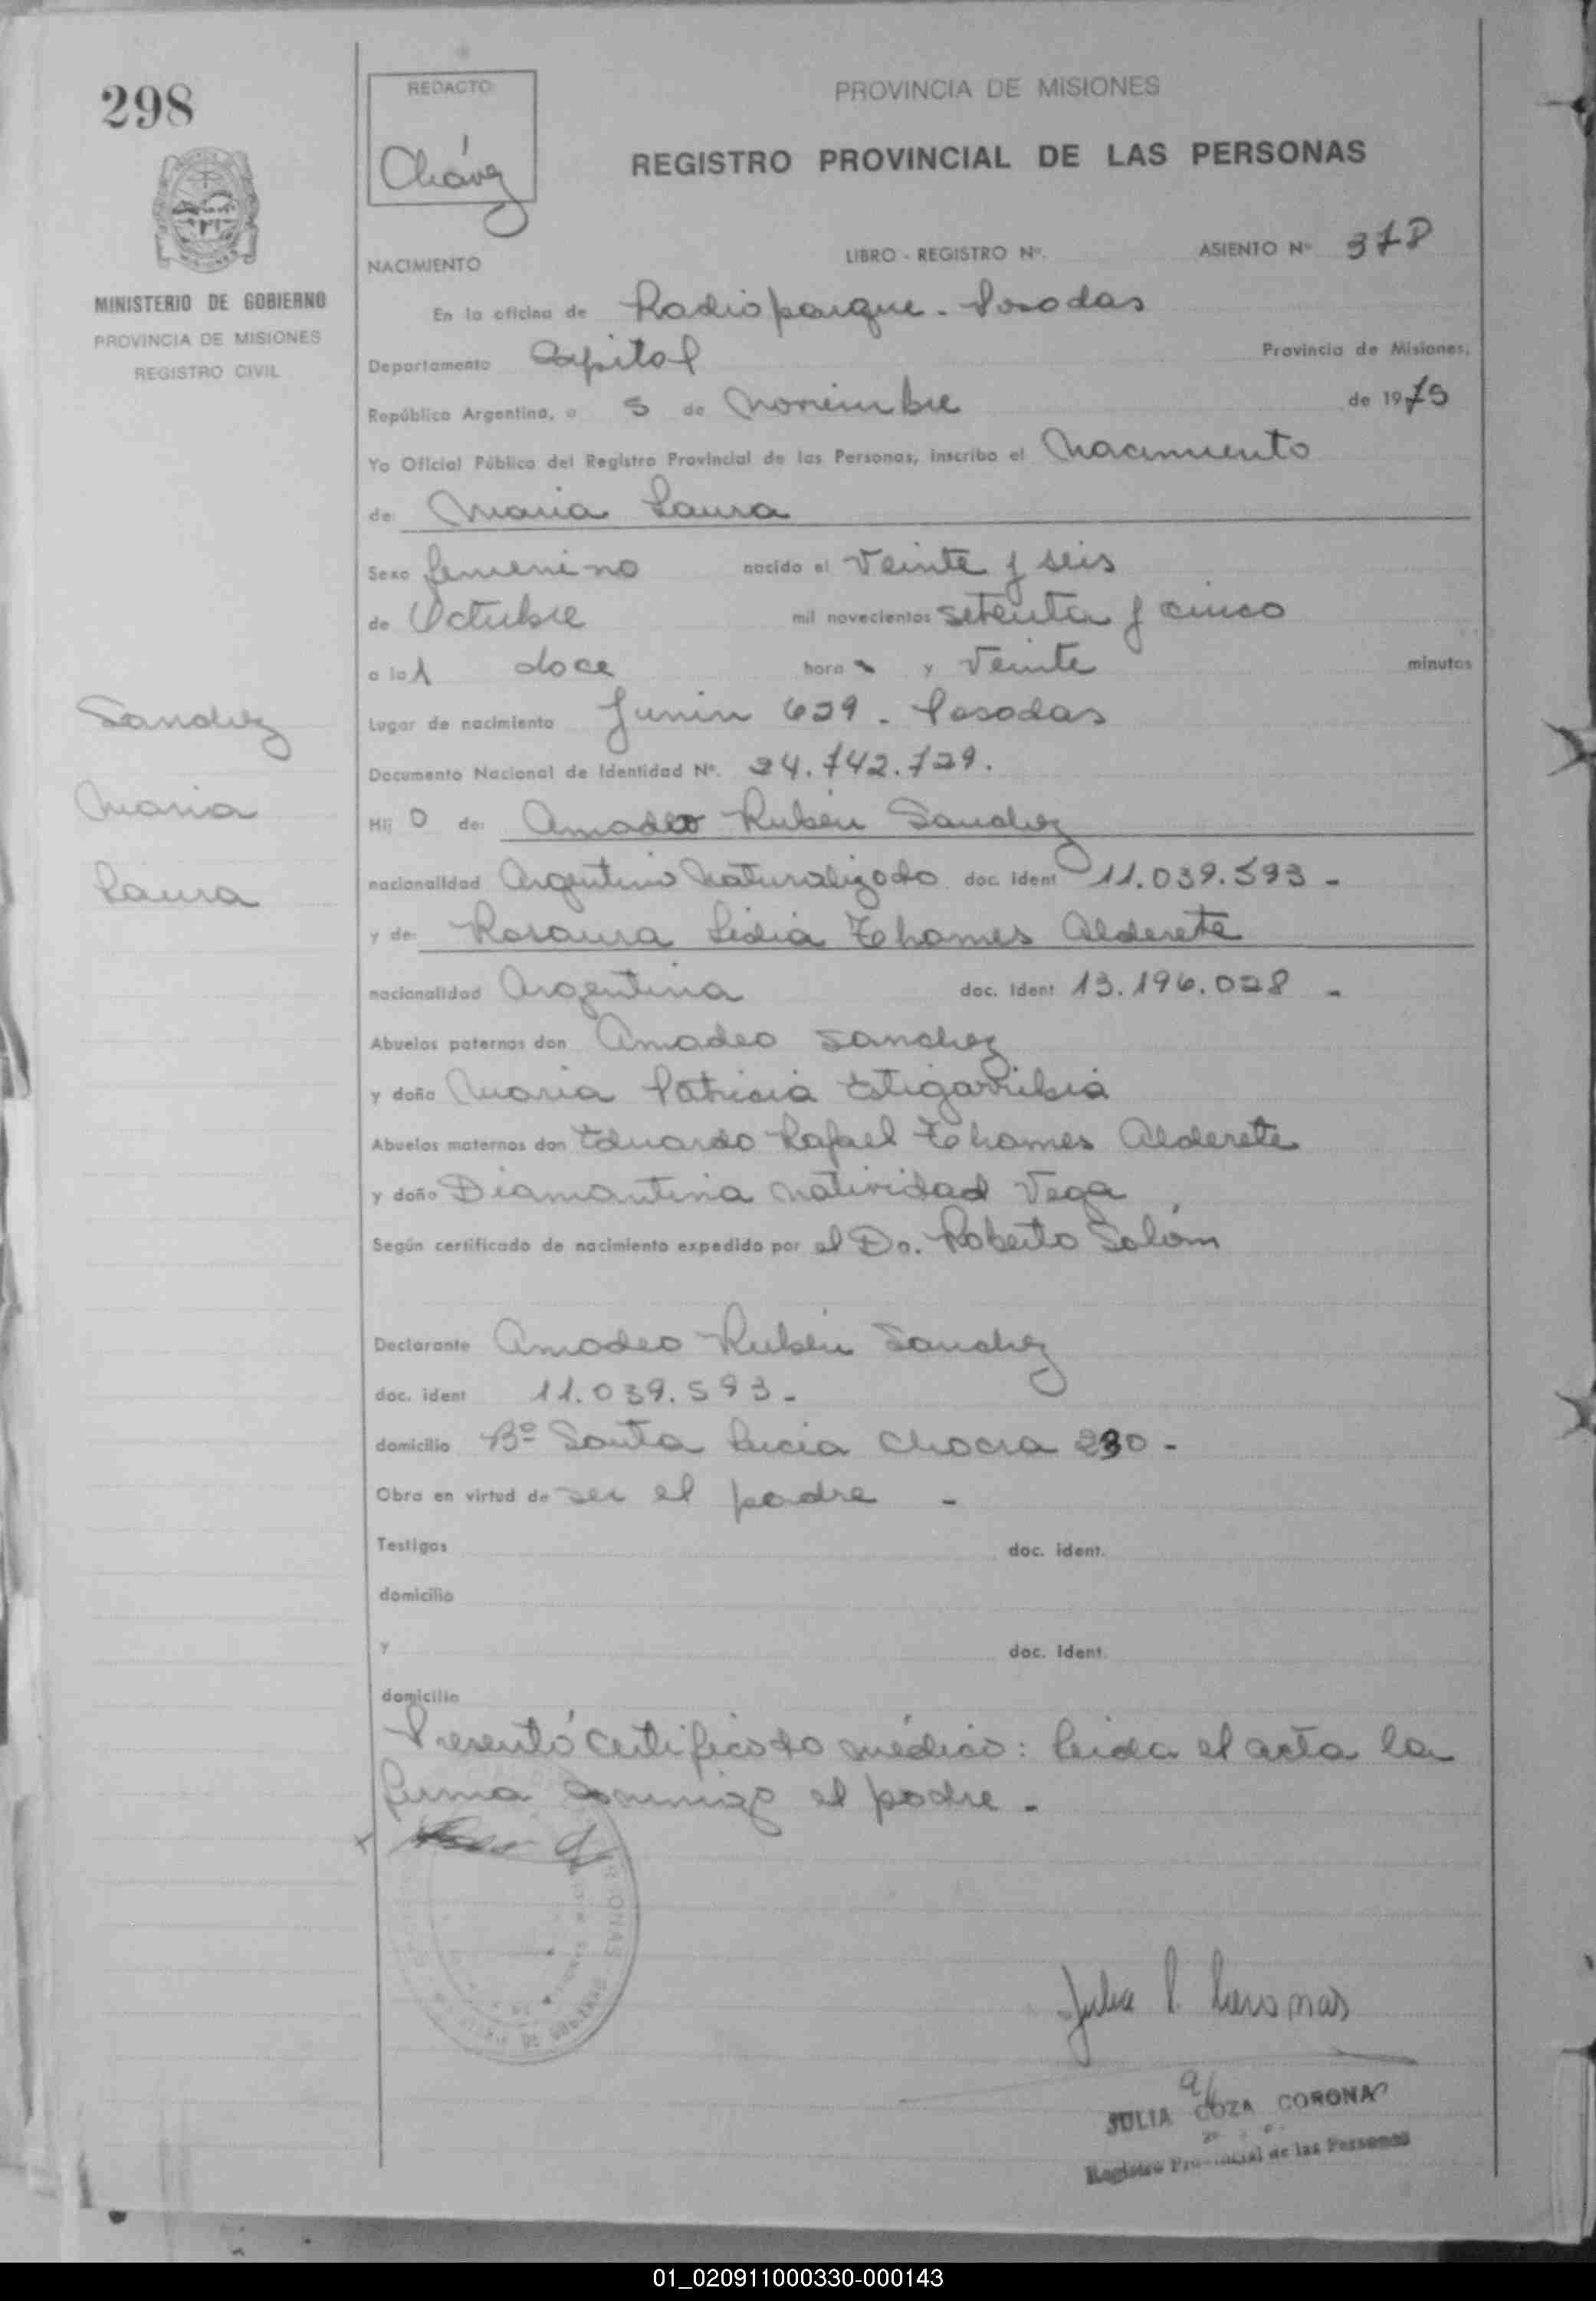 298
REDACTO
Chávez
PROVINCIA DE MISIONES
REGISTRO PROVINCIAL DE LAS PERSONAS
MINISTERIO DE GOBIERNO
PROVINCIA DE MISIONES
REGISTRO CIVIL
NACIMIENTO LIBRO - REGISTRO Nº. ASIENTO Nº 378
En la oficina de Radioparque - Posadas
Departamento Capital Provincia de Misiones,
República Argentina, a 5 de Noviembre de 1975
Yo Oficial Público del Registro Provincial de las Personas, inscribo el Nacimiento
de: Maria Laura
Sexo femenino nacido el veinte y seis
de Octubre mil novecientos setenta y cinco
a las doce hora s y veinte minutos
Lugar de nacimiento Junin 629 - Posadas
Documento Nacional de Identidad Nº. 24.742.729.
Sanchez
Maria
Laura
Hij a de: Amadeo Rubén Sanchez
nacionalidad Argentino Naturalizado doc. ident 11.039.593 -
y de: Rosaura Lidia Thames Alderete
nacionalidad Argentina doc. ident 13.196.028 -
Abuelos paternos don Amadeo Sanchez
y doña Maria Patricia Estigarribia
Abuelos maternos don Eduardo Rafael Thames Alderete
y doña Diamantina Natividad Vega
Según certificado de nacimiento expedido por el Dr. Roberto
Declarante Amadeo Rubén Sanchez
doc. ident 11.039.593 -
domicilio Bº Santa Lucia Chacra 230 -
Obra en virtud de ser el padre -
Testigos doc. ident.
domicilio
y doc. ident.
domicilio
Presentó certificado médico: leida el acta la
firma conmigo el padre -
JULIA COZA CORONA
Registro Provincial de las Personas
01_020911000330-000143